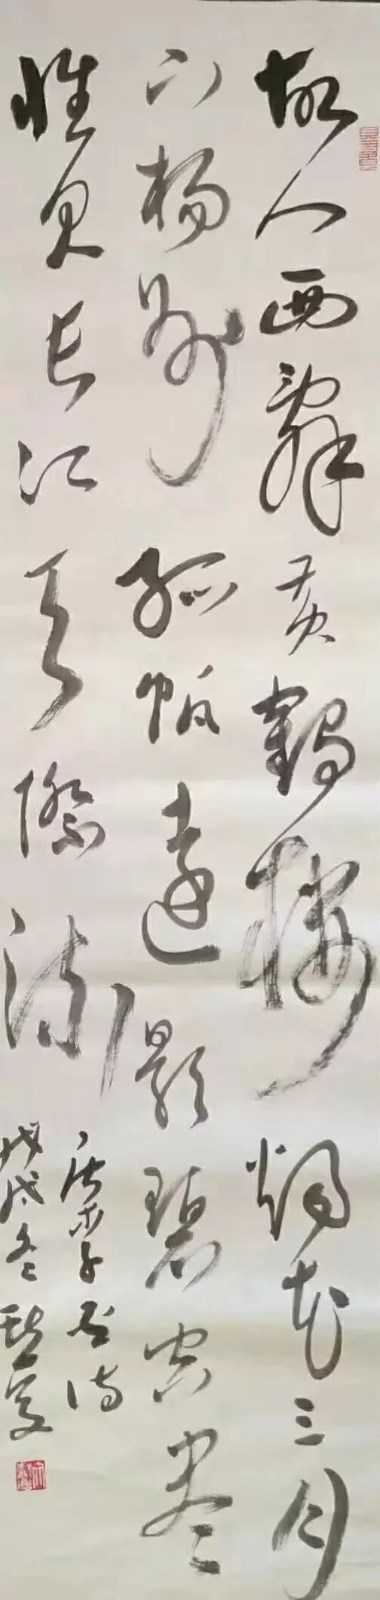 故人西辭黄鶴樓烟花三月
下楊州孤帆遠影碧空尽
惟見長江天際流
唐李白诗
戊戌冬